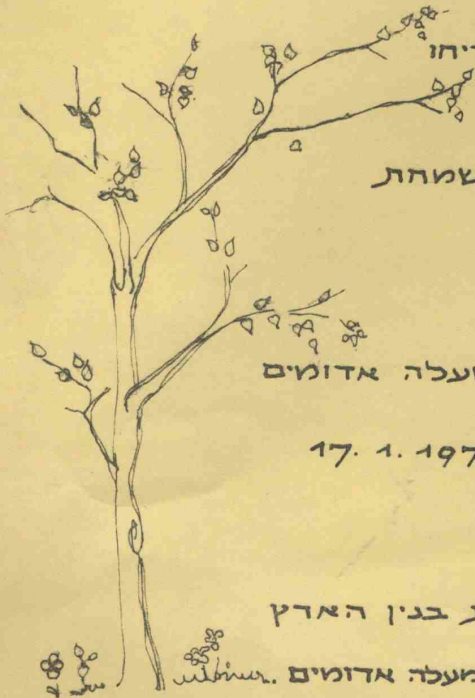 ריחו
שמחת
מעלה אדומים
17.1.197
בנין הארץ
מעלה אדומים